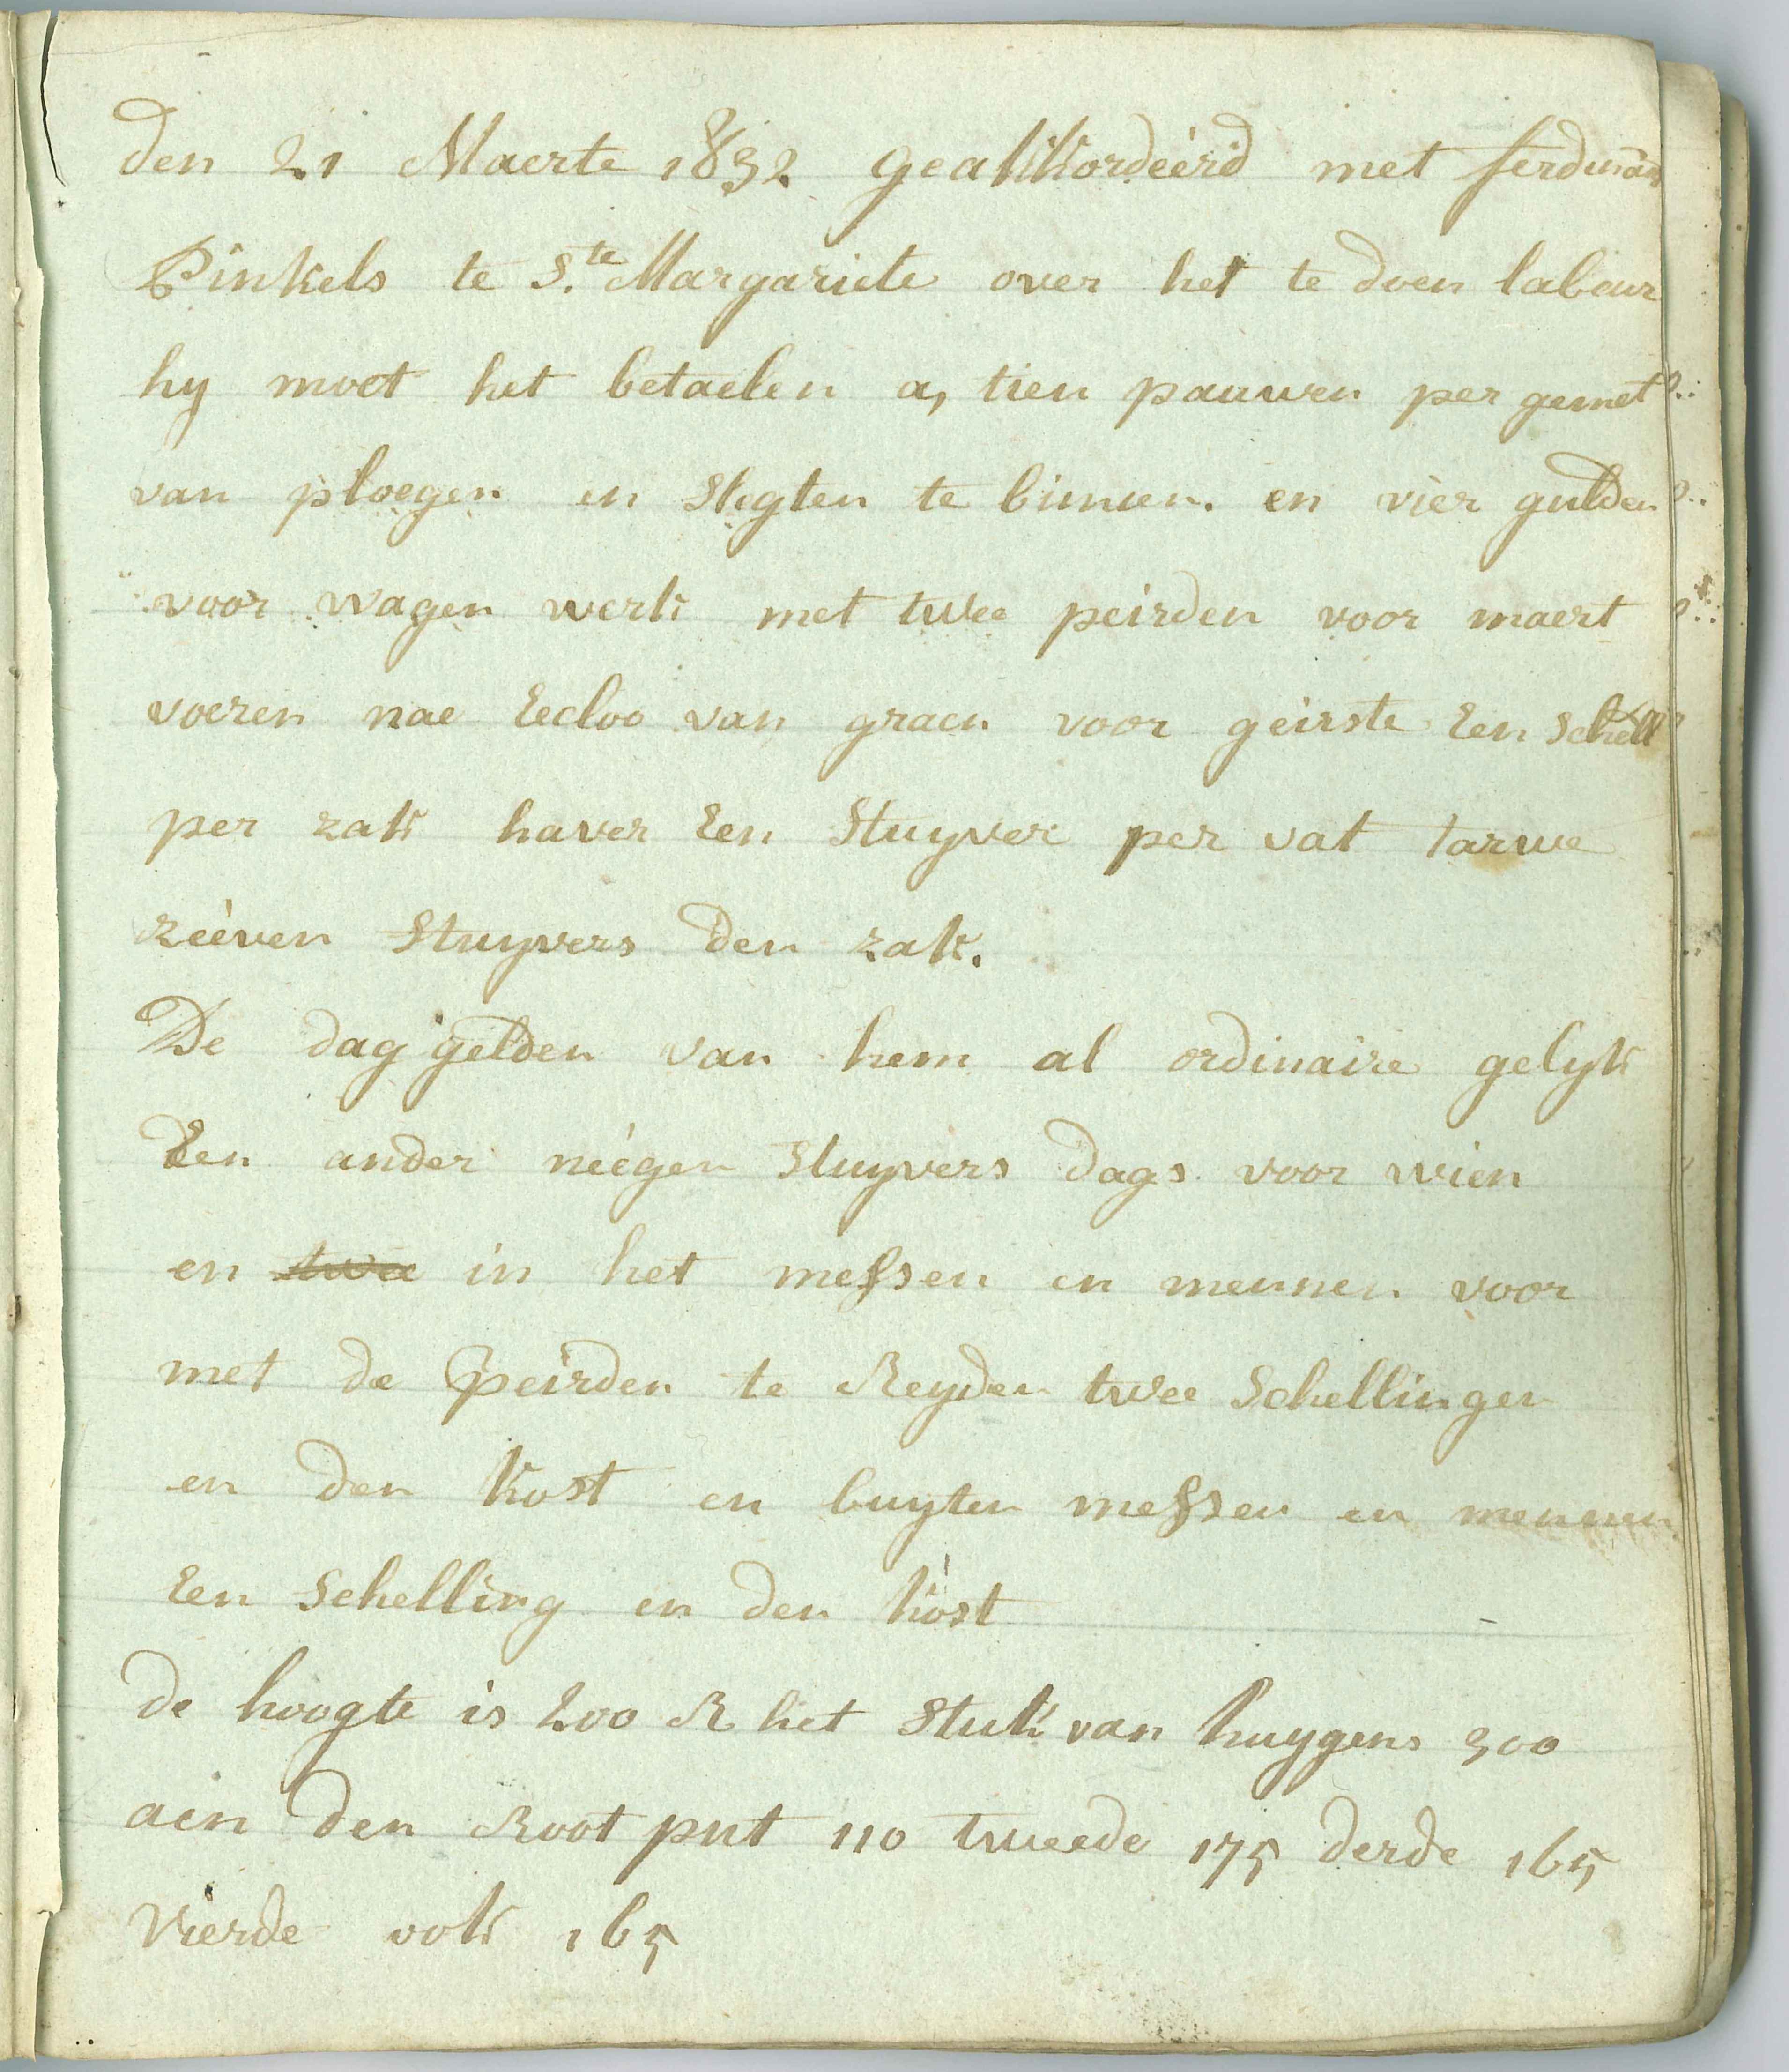 den 21 Maerte 1832 geakkordeérd met ferdinan
Pinkels te S.te Margariete over het te doen labeur
hy moet het betaelen a, tien pauwen per gemet
van ploegen en slegten te binnen. en vier gulden
voor wagen werk met twee peirden voor maert
voeren nae Eecloo van graen voor geirste Een schell
per zak haver Een Stuyver per vat tarwe
zeéven Stuyvers den zak.
De dag gelden van hem al ordinaire gelyk
Een ander neégen Stuyvers dags voor wien
en twee in het messen en mennen voor
met de peirden te Reyden twee Schellingen
en den kost en buyten messen en mennen
Een Schelling en den kost
de hoogte is 200 R het Stuk van huygens 300
aen den Root put 110 tweede 175 derde 165
Vierde ook 165